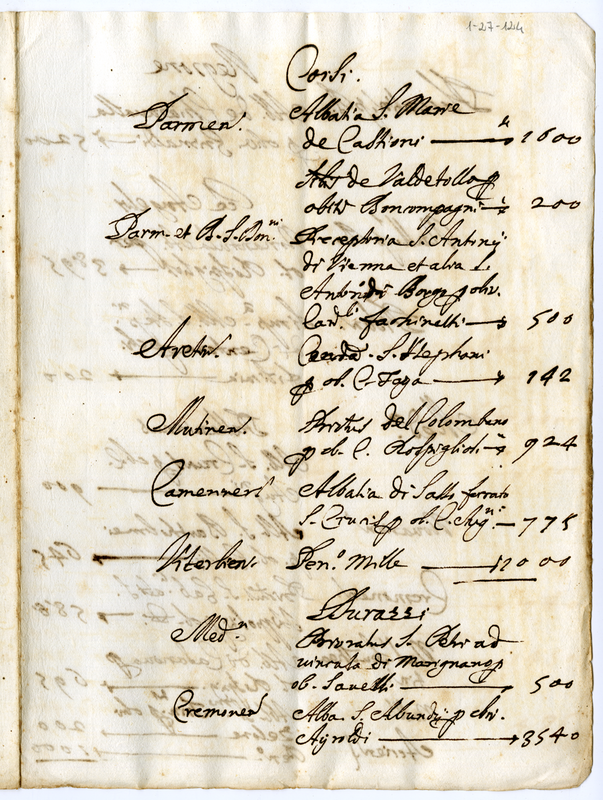 1-27-124
Corsi.
Parmen. Abbatia S. Marie
de Castioni 1600
de Valdetollo p
obitu Boncompagni 200
Parm. et B. S. Don. Preceptoria S. Antonij
di Vienna et alia S.
Antonij di Borgo p obit.
Card. fachinetti 500
Aretin. S. Stephani
p ob. C. 142
Mutinen. Prutus del Colombaro
p ob. C. Rospigliosi 924
Camerinen. Abbatia di Sasso ferrato
S. Crucis p ob. C. 775
Viterbien. Pen. Mille 12000
Durazzi
Med. Prioratus S. Petri ad
vincula di Marignano p
ob. Savelli 500
Cremonen. Abba. S. Abundij p obi.
Ayroldi 3540